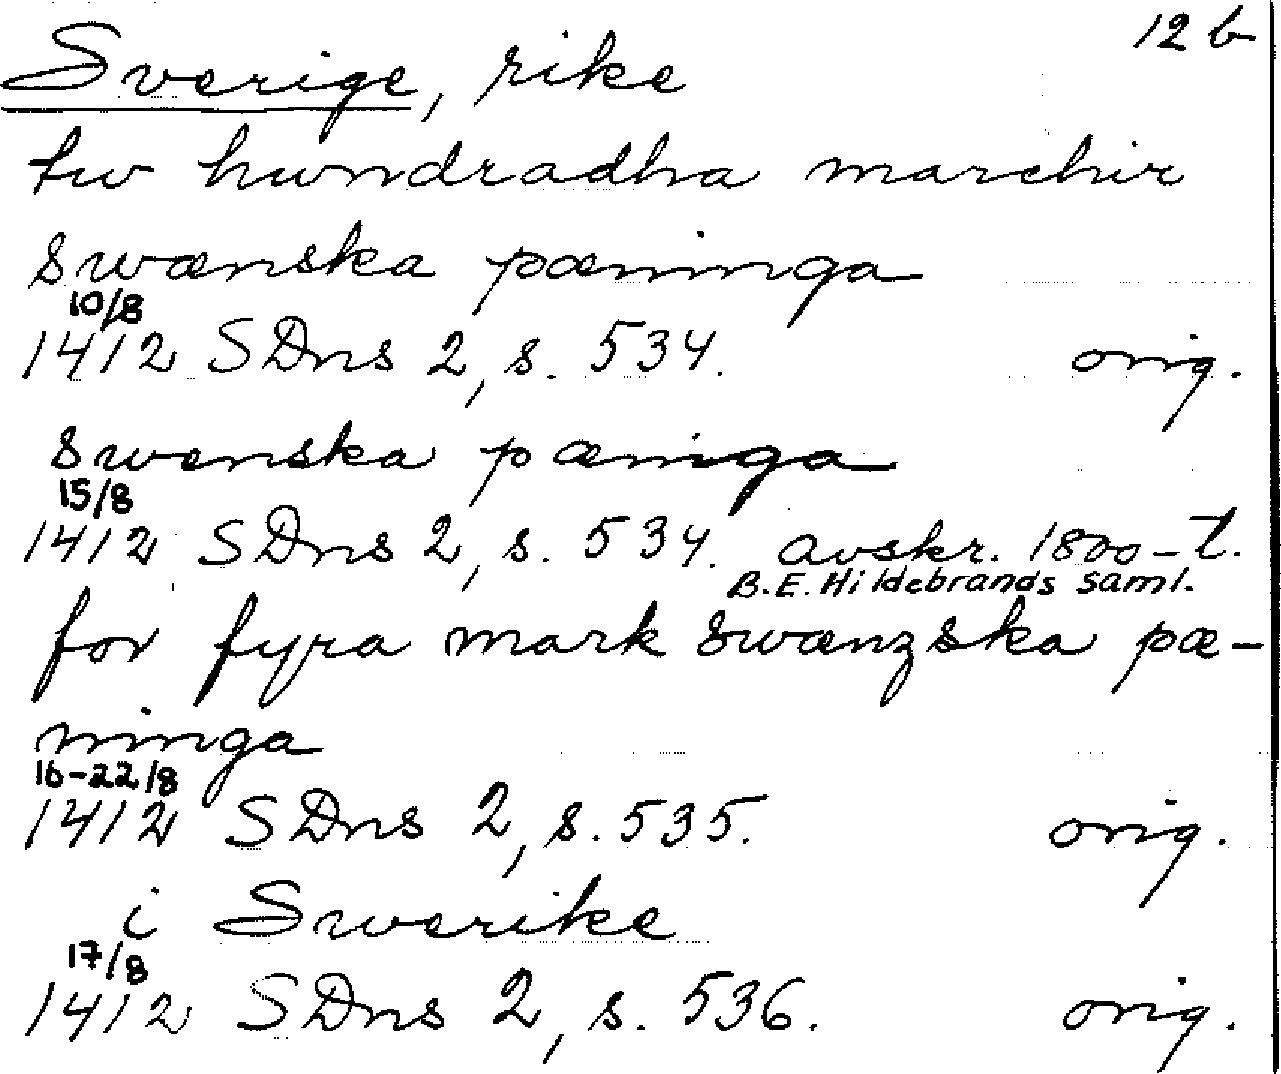 12 b
Sverige, rike
tw hwndradha marchir
swænska pæninga
10/8
1412 SDns 2, s. 534. orig.
swenska pæniga
15/8
1412 SDns 2, s. 534. avskr. 1800-t.
B.E. Hildebrands saml.
for fyra mark swænzska pæ-
ninga
16-22/8
1412 SDns 2, s. 535. orig.
i Swerike
17/8
1412 SDns 2, s. 536. orig.